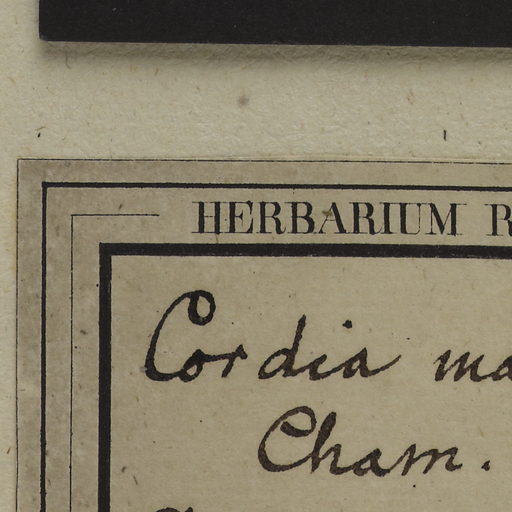 HERBARIUM R
Cordia ma
Cham.